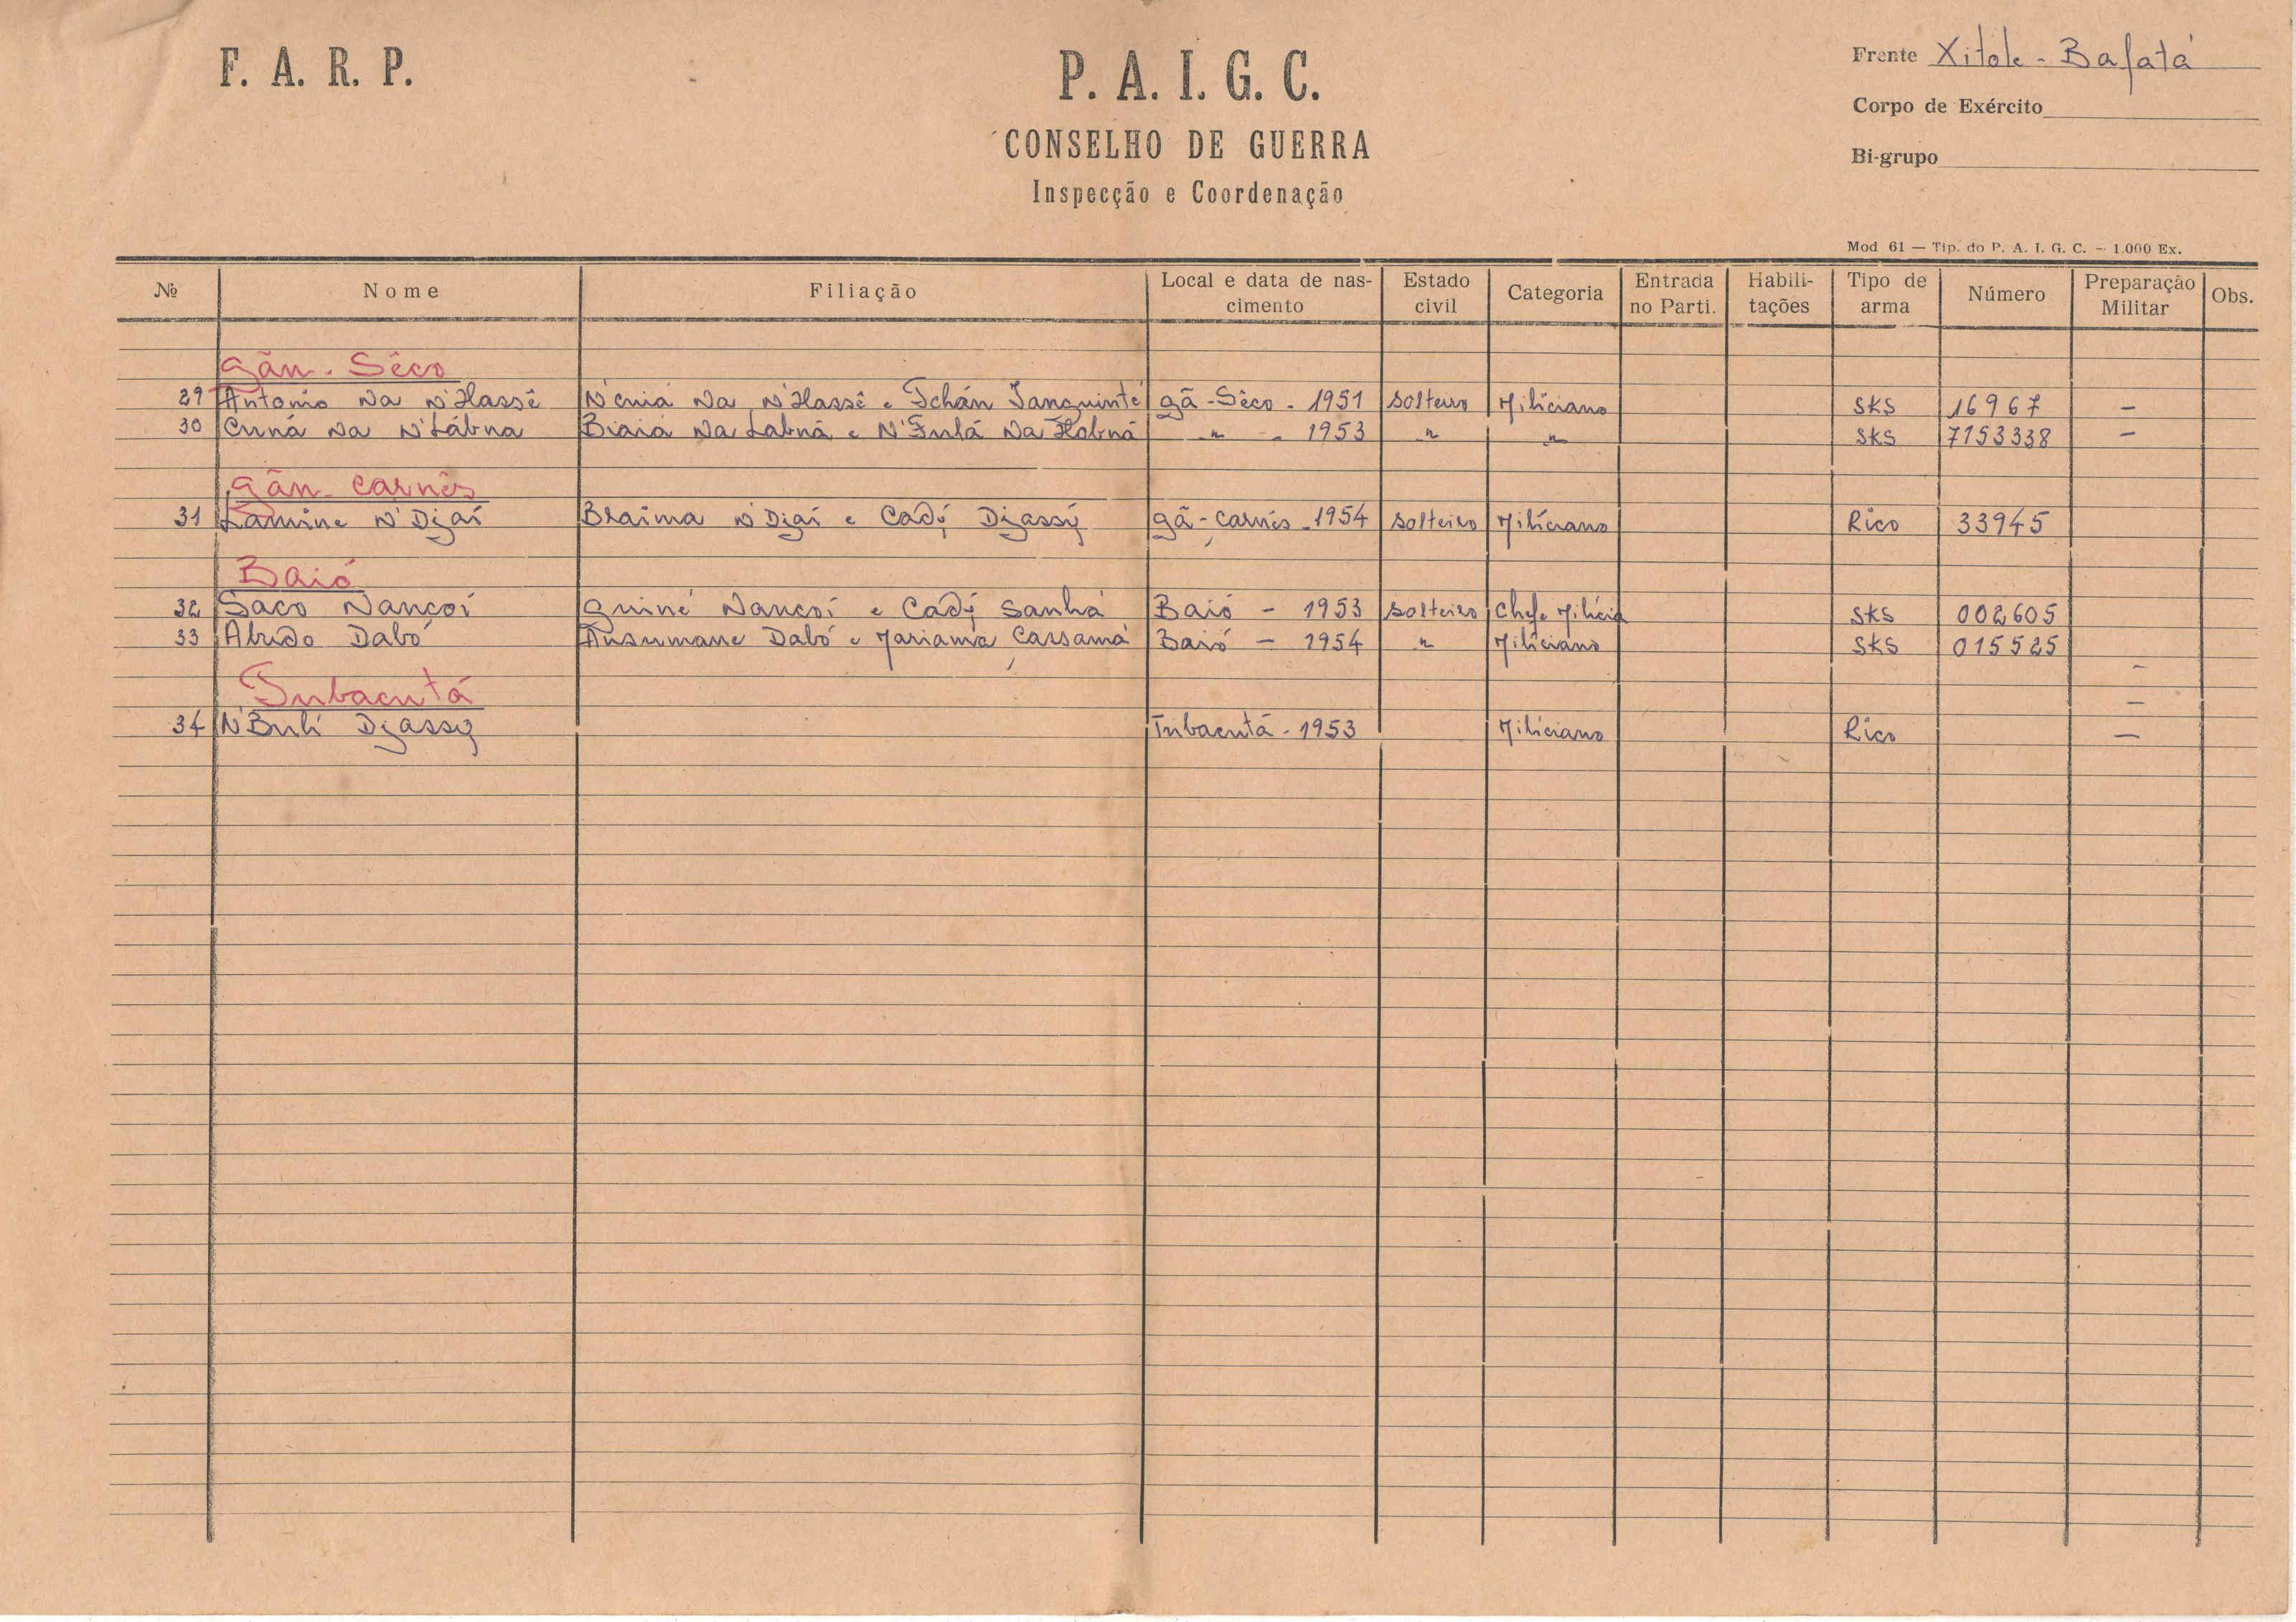 F. A. R. P.
P. A. I. G. C.
CONSELHO DE GUERRA
Inspecção e Coordenação
Frente Xitole - Bafatá
Corpo de Exército
Bi-grupo
Mod 61 — Tip. do P. A. I. G. C. — 1.000 Ex.
№ Nome Filiação Local e data de nascimento Estado civil Categoria Entrada no Parti. Habilitações Tipo de arma Número Preparação Militar Obs.
Gãn - Sêco
29 Antonio Na N'Hassê N'cuiá Na N'Hassê e Tchán Sanquinté gã - Sêco - 1951 Solteiro Miliciano SKS 16967 —
30 Cuná Na N'Lábna Biaiá Na Labná e N'Fulá Na Habná " - 1953 " " SKS 7153338 —
Gãn - Carnês
31 Lamine N'Djai Braima N'Djai e Cadí Djassy gã - Carnês - 1954 Solteiro Miliciano Rico 33945
Baió
32 Saco Nancoi Guiné Nancoi e Cadí Sanhá Baió - 1953 Solteiro Chefe Milicia SKS 002605
33 Abudo Dabó Ansumane Dabó e Mariama Cassamá Baió - 1954 " Miliciano SKS 015525 —
Tubacutá —
34 N'Buli Djassy Tubacutá - 1953 Miliciano Rico —